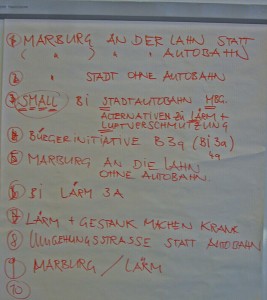 1 MARBURG AN DER LAHN STATT
( " ) " " AUTOBAHN
2 " STADT OHNE AUTOBAHN
3 SMALL Bi STADTAUTOBAHN MBG.
ALTERNATIVEN ZU LÄRM +
LUFTVERSCHMUTZUNG
4 BÜRGERINITIATIVE B3a (Bi3a)
49
5 MARBURG AN DIE LAHN
OHNE AUTOBAHN
6 Bi LÄRM 3A
7 LÄRM + GESTANK MACHEN KRANK
8 UMGEHUNGSSTRASSE STATT AUTOBAHN
9 MARBURG / LÄRM
10